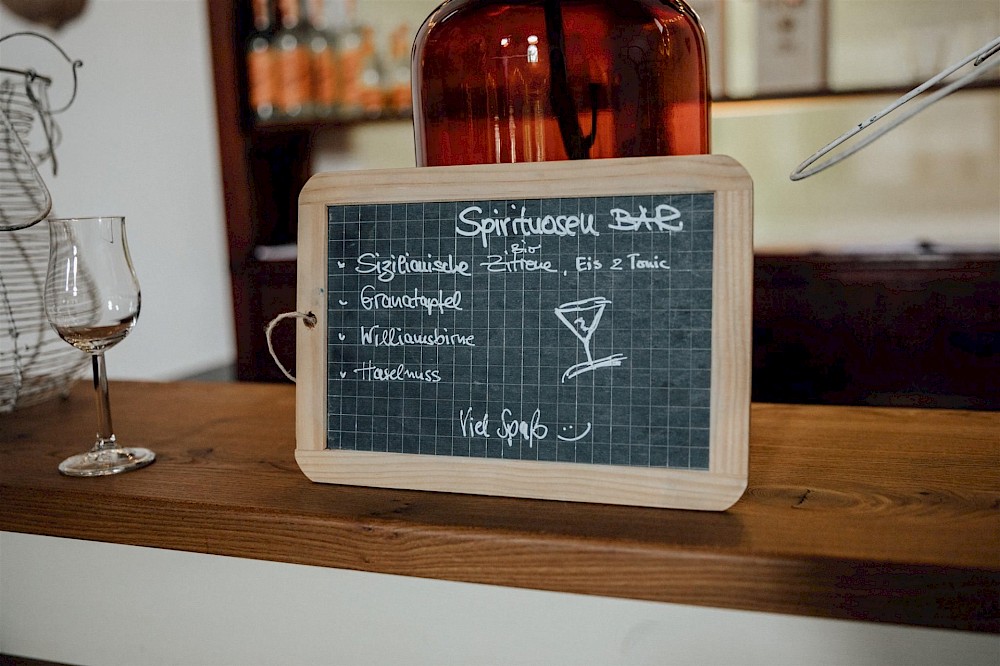 Spirituosen BAR
Sizilianische Bio Zitrone, Eis & Tonic
Granatapfel
Williamsbirne
Haselnuss
Viel Spaß